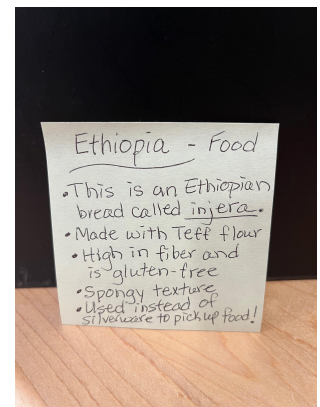 Ethiopia - Food
• This is an Ethiopian
bread called injera.
• Made with Teff flour
• High in fiber and
is gluten-free
• Spongy texture
• Used instead of
silverware to pick up food!